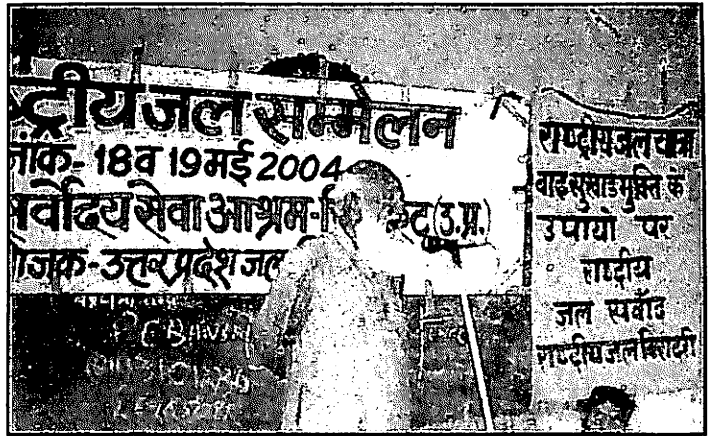 ष्ट्रीय जल सम्मेलन
नांक- 18 व 19 मई 2004
सर्वोदय सेवा आश्रम- (उ.प्र.)
ोजक- उत्तर प्रदेश जल
राष्ट्रीय जल यात्रा
बाढ़ सुखाड़ मुक्ति के
उपायो पर
राष्ट्रीय
जल संवाद
राष्ट्रीय जल बिरादरी